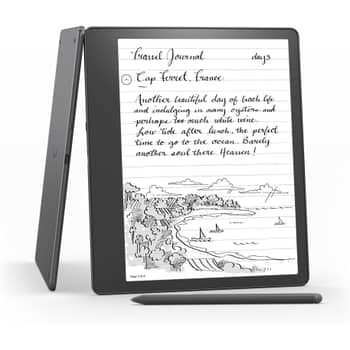 Travel Journal day 3
Cap Ferret, France
Another beautiful day of beach life
and indulging in many oysters and
perhaps too much white wine.
Low tide after lunch, the perfect
time to go to the ocean. Barely
another soul there Heaven!